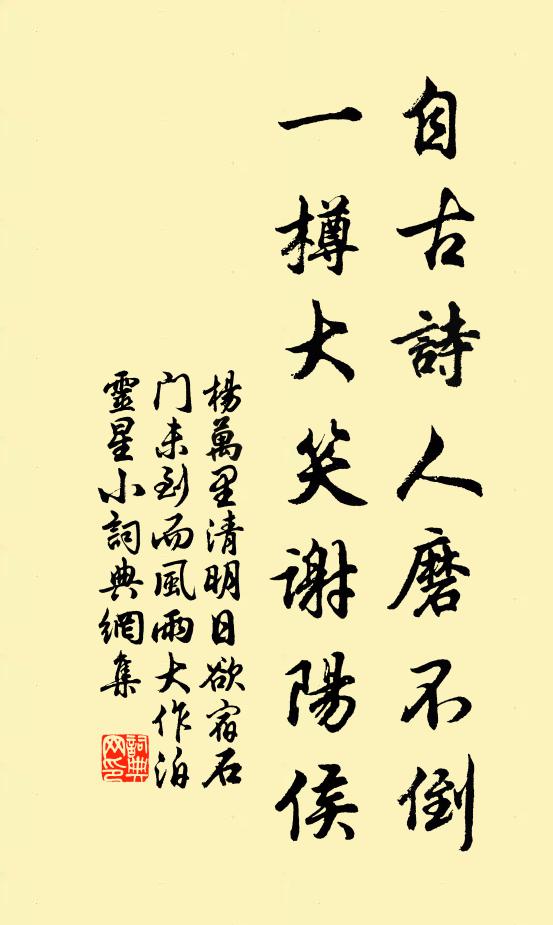 自古詩人磨不倒
一樽大笑謝陽侯
楊萬里清明日欲宿石
门未到而風雨大作泊
靈星小詞典網集
詞典
网印